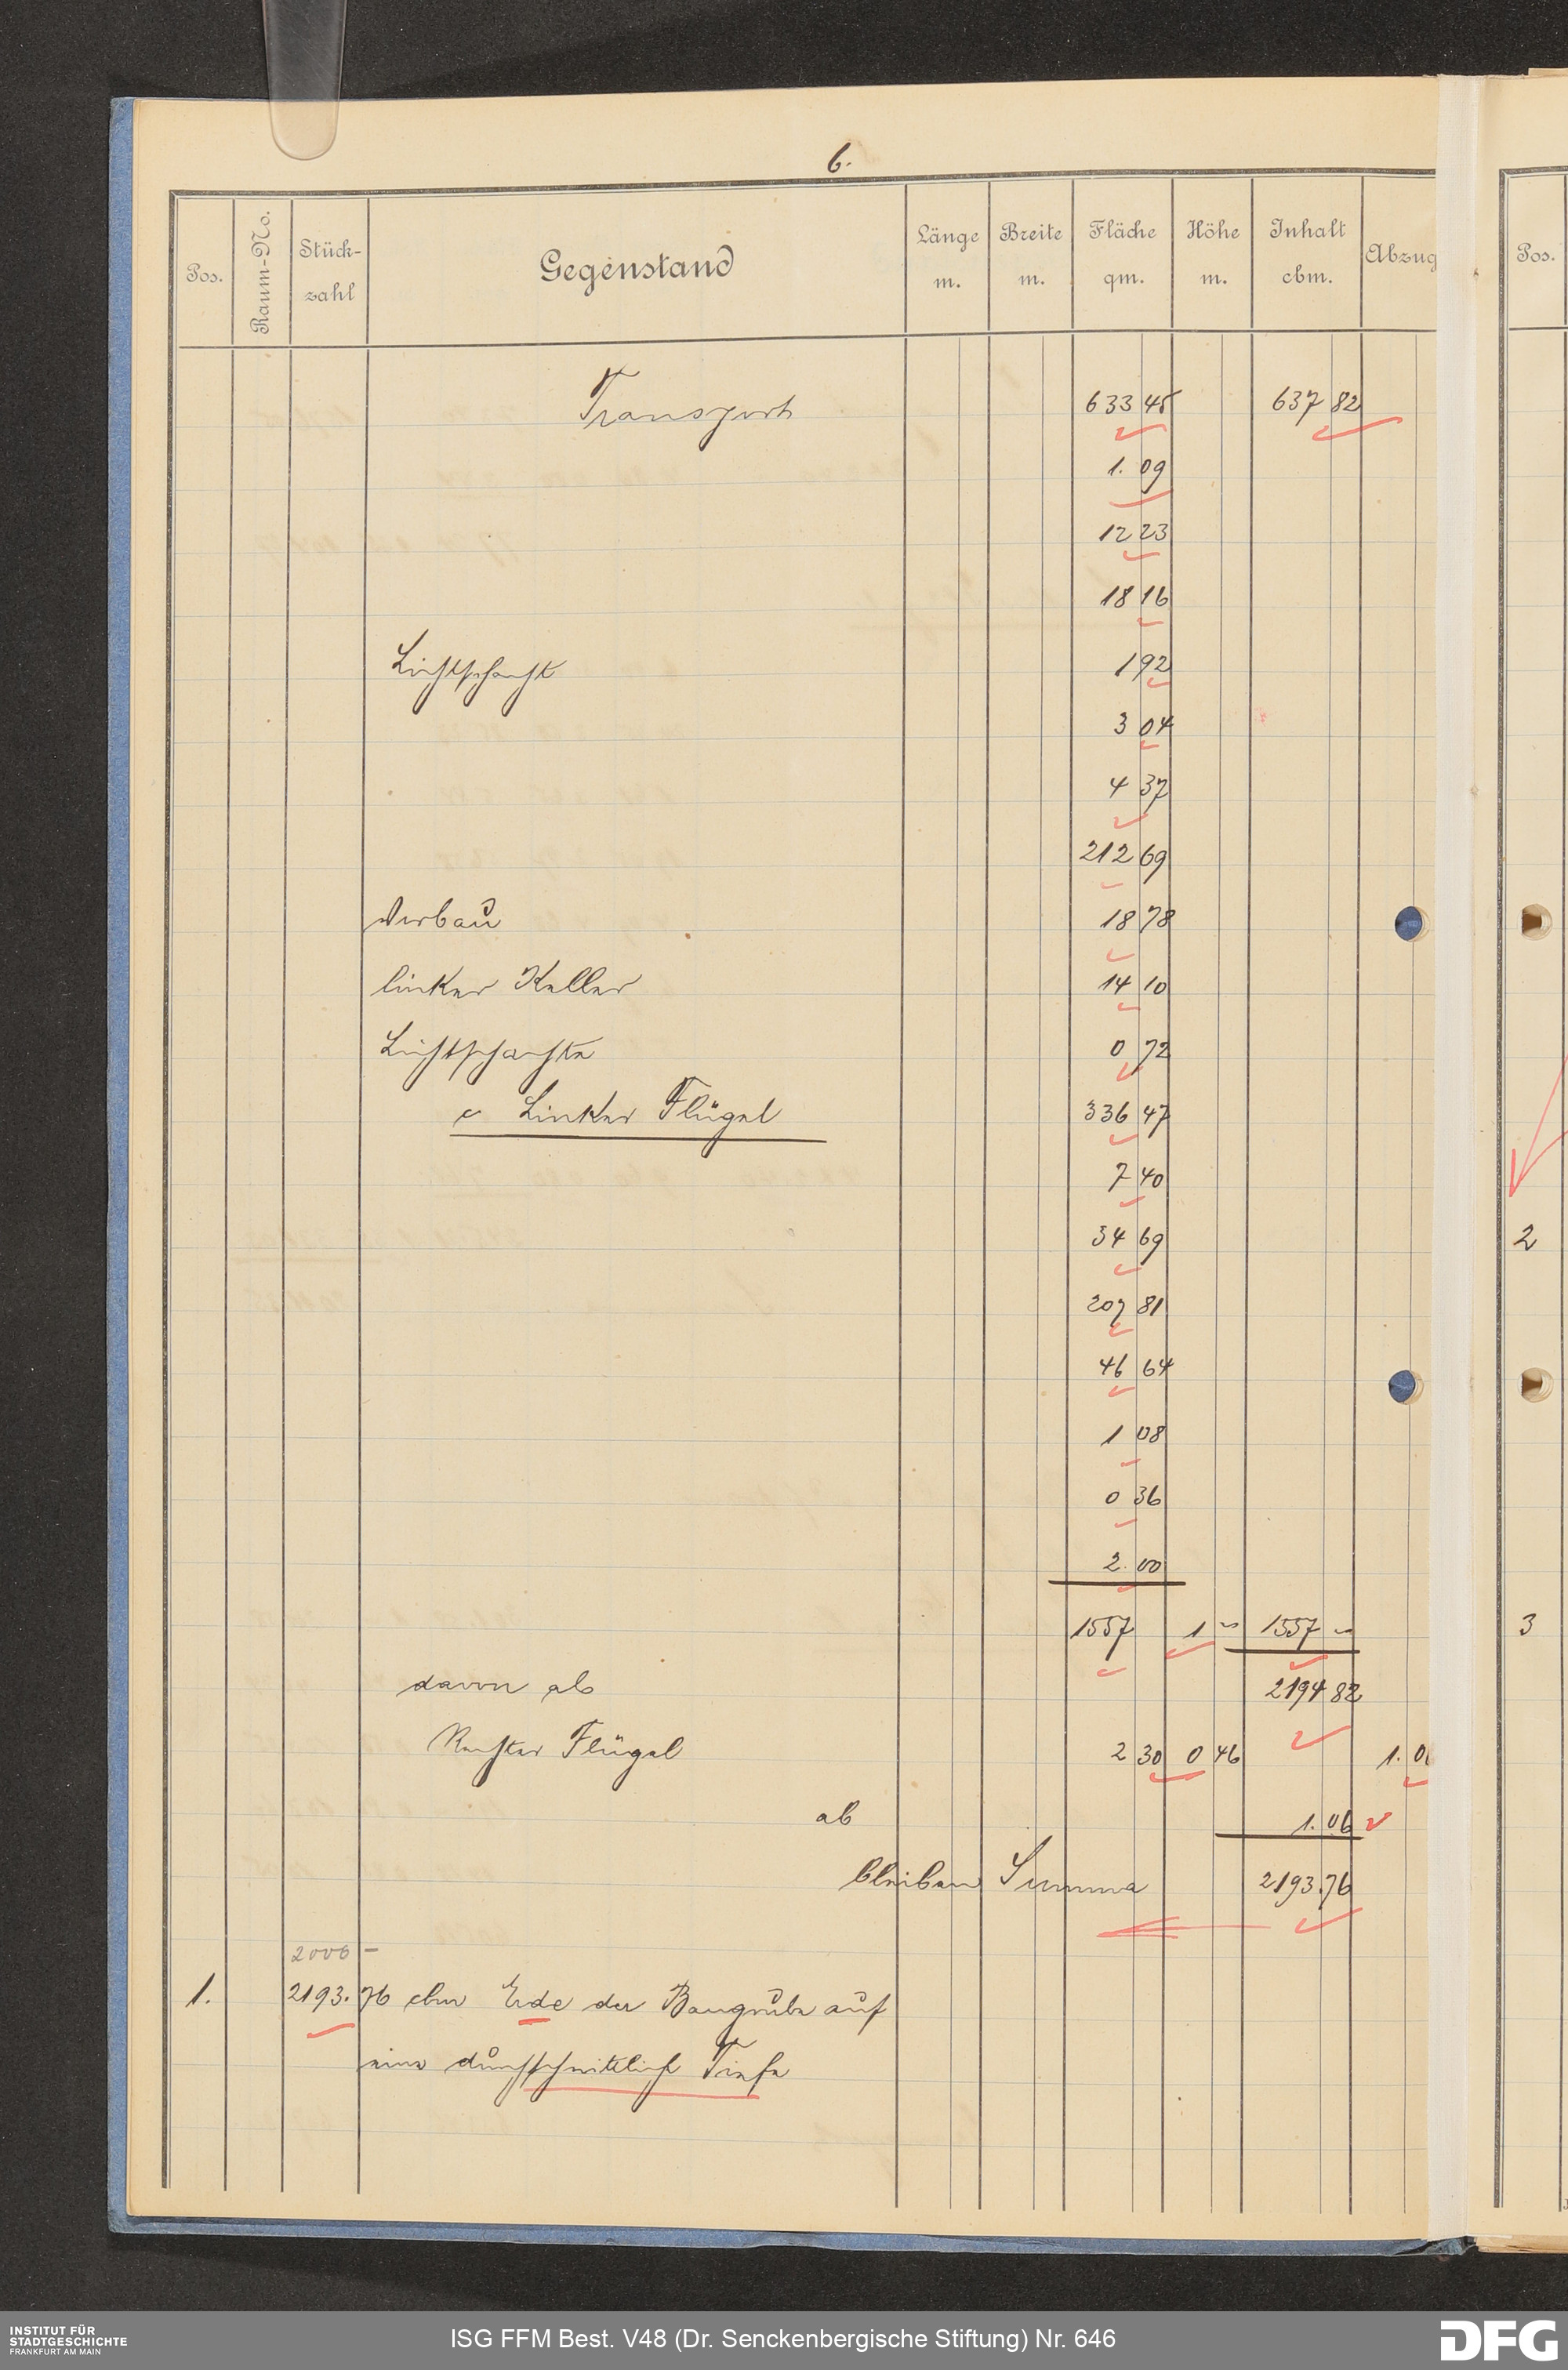 6.
Pos. Raum-No. Stück-zahl Gegenstand Länge m. Breite m. Fläche qm. Höhe m. Inhalt cbm. Abzug Pos.
Transport 633 45 637 82
1. 09
12 23
18 16
Lichtschacht 1 92
3 04
4 37
212 69
Vorbau 18 78
linker Keller 14 10
Lichtschachte 0 72
c Linker Flügel 336 47
7 40
34 69 2
207 81
46 64
1 08
0 36
2. 00
1557 1 – 1557 – 3
davon ab 2194 82
Rechter Flügel 2 30 0 46 1. 0
ab 1. 06
bleiben Summa 2193. 76
2000 –
1. 2193. 76 cbm Erde der Baugrube auf
eine durchschnittlich Tiefe
INSTITUT FÜR
STADTGESCHICHTE
FRANKFURT AM MAIN
ISG FFM Best. V48 (Dr. Senckenbergische Stiftung) Nr. 646
DFG